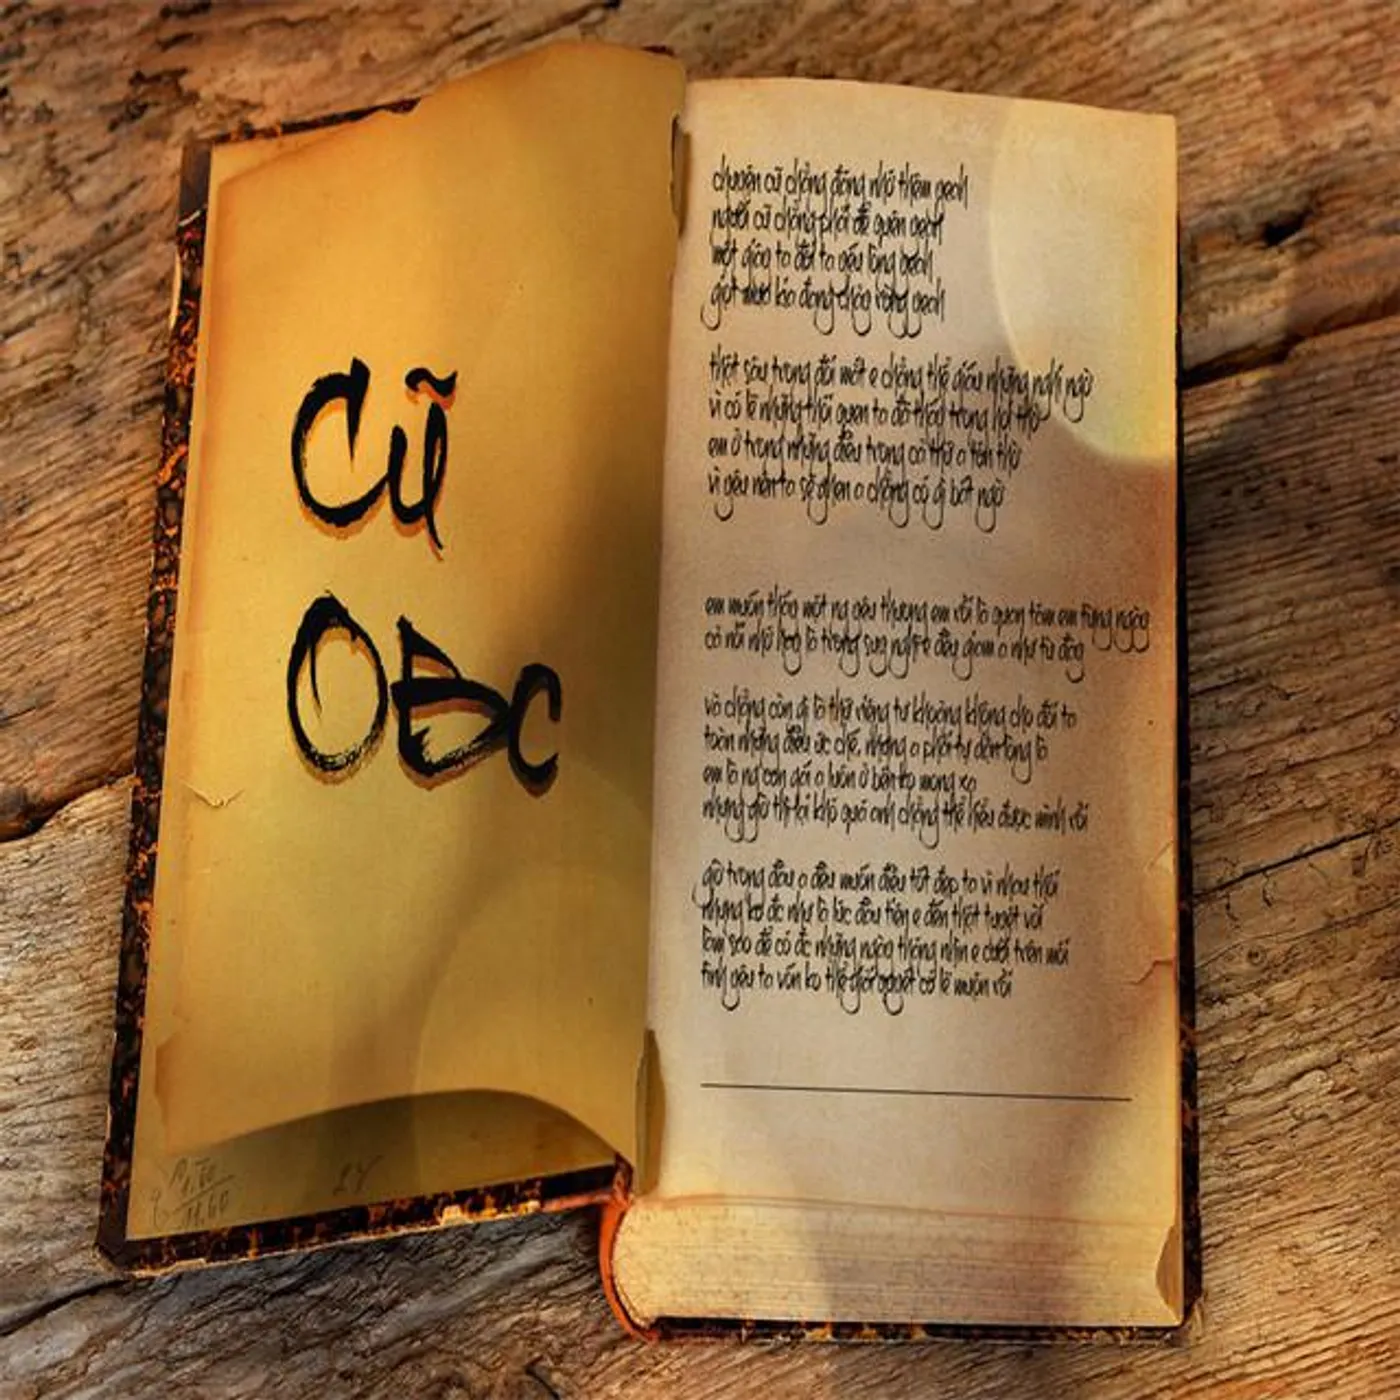 Cũ
OĐC
chuyện cũ chẳng đáng nhớ thêm gạch
người cũ chẳng phải để quên gạch
một giây ta đôi ta gẫy lòng gạch
giọt mưa kéo đang chảy vòng gạch
thật sâu trong đôi mắt e chẳng thể giấu những nghi ngờ
vì có lẽ những thói quen ta đã thấy trong hơi thở
em ở trong những điều trong cả thứ a tôn thờ
vì yêu nên ta sẽ ghen a chẳng có gì bất ngờ
em muốn thấy một ng yêu thương em rồi là quan tâm em từng ngày
cả nói nhớ hay là trong suy nghĩ e đầy giam a như từ đây
và chẳng còn gì là thứ riêng tư khoảng không cho đôi ta
toàn những điều ức chế, nhưng a phải tự dặn lòng là
em là ng con gái a luôn ở bên ko mong xa
nhưng giờ thì lại khó quá anh chẳng thể hiểu được mình rồi
giờ trong đầu a đều muốn điều tốt đẹp ta vì nhau thôi
nhưng ko đc như là lúc đầu tiên e đến thật tuyệt vời
làm sao để có đc những ngày tháng nhìn e cười trên môi
tình yêu ta vốn ko thể giải quyết có lẽ muộn rồi